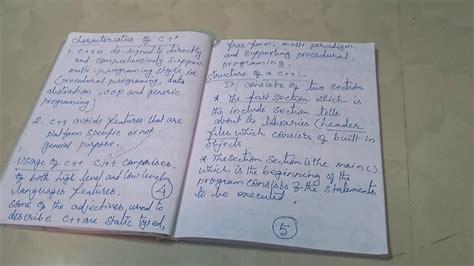 Characteristics of C++
1. C++ is designed to directly
and comprehensively support
multi-programing style be
(procedural programing, data
abstration, OOP and generic
programing)
2. C++ avoide features that are
platform specific or not
general purpose.
Usage of C++ C/C++ comprises
of both high level and low level
languages features.
some of the adjectives, used to
describe C++ are static typed,
4
free-form, multi paradigm,
and supporting procedural
programing.
Structure of a C++:-
It consists of two section
* The first section which is
the include section tells
about the libraries (header
files which consists of built in
objects
* The section Section is the main(),
which is the beginning of the
program consists of the statements
to be executed.
5